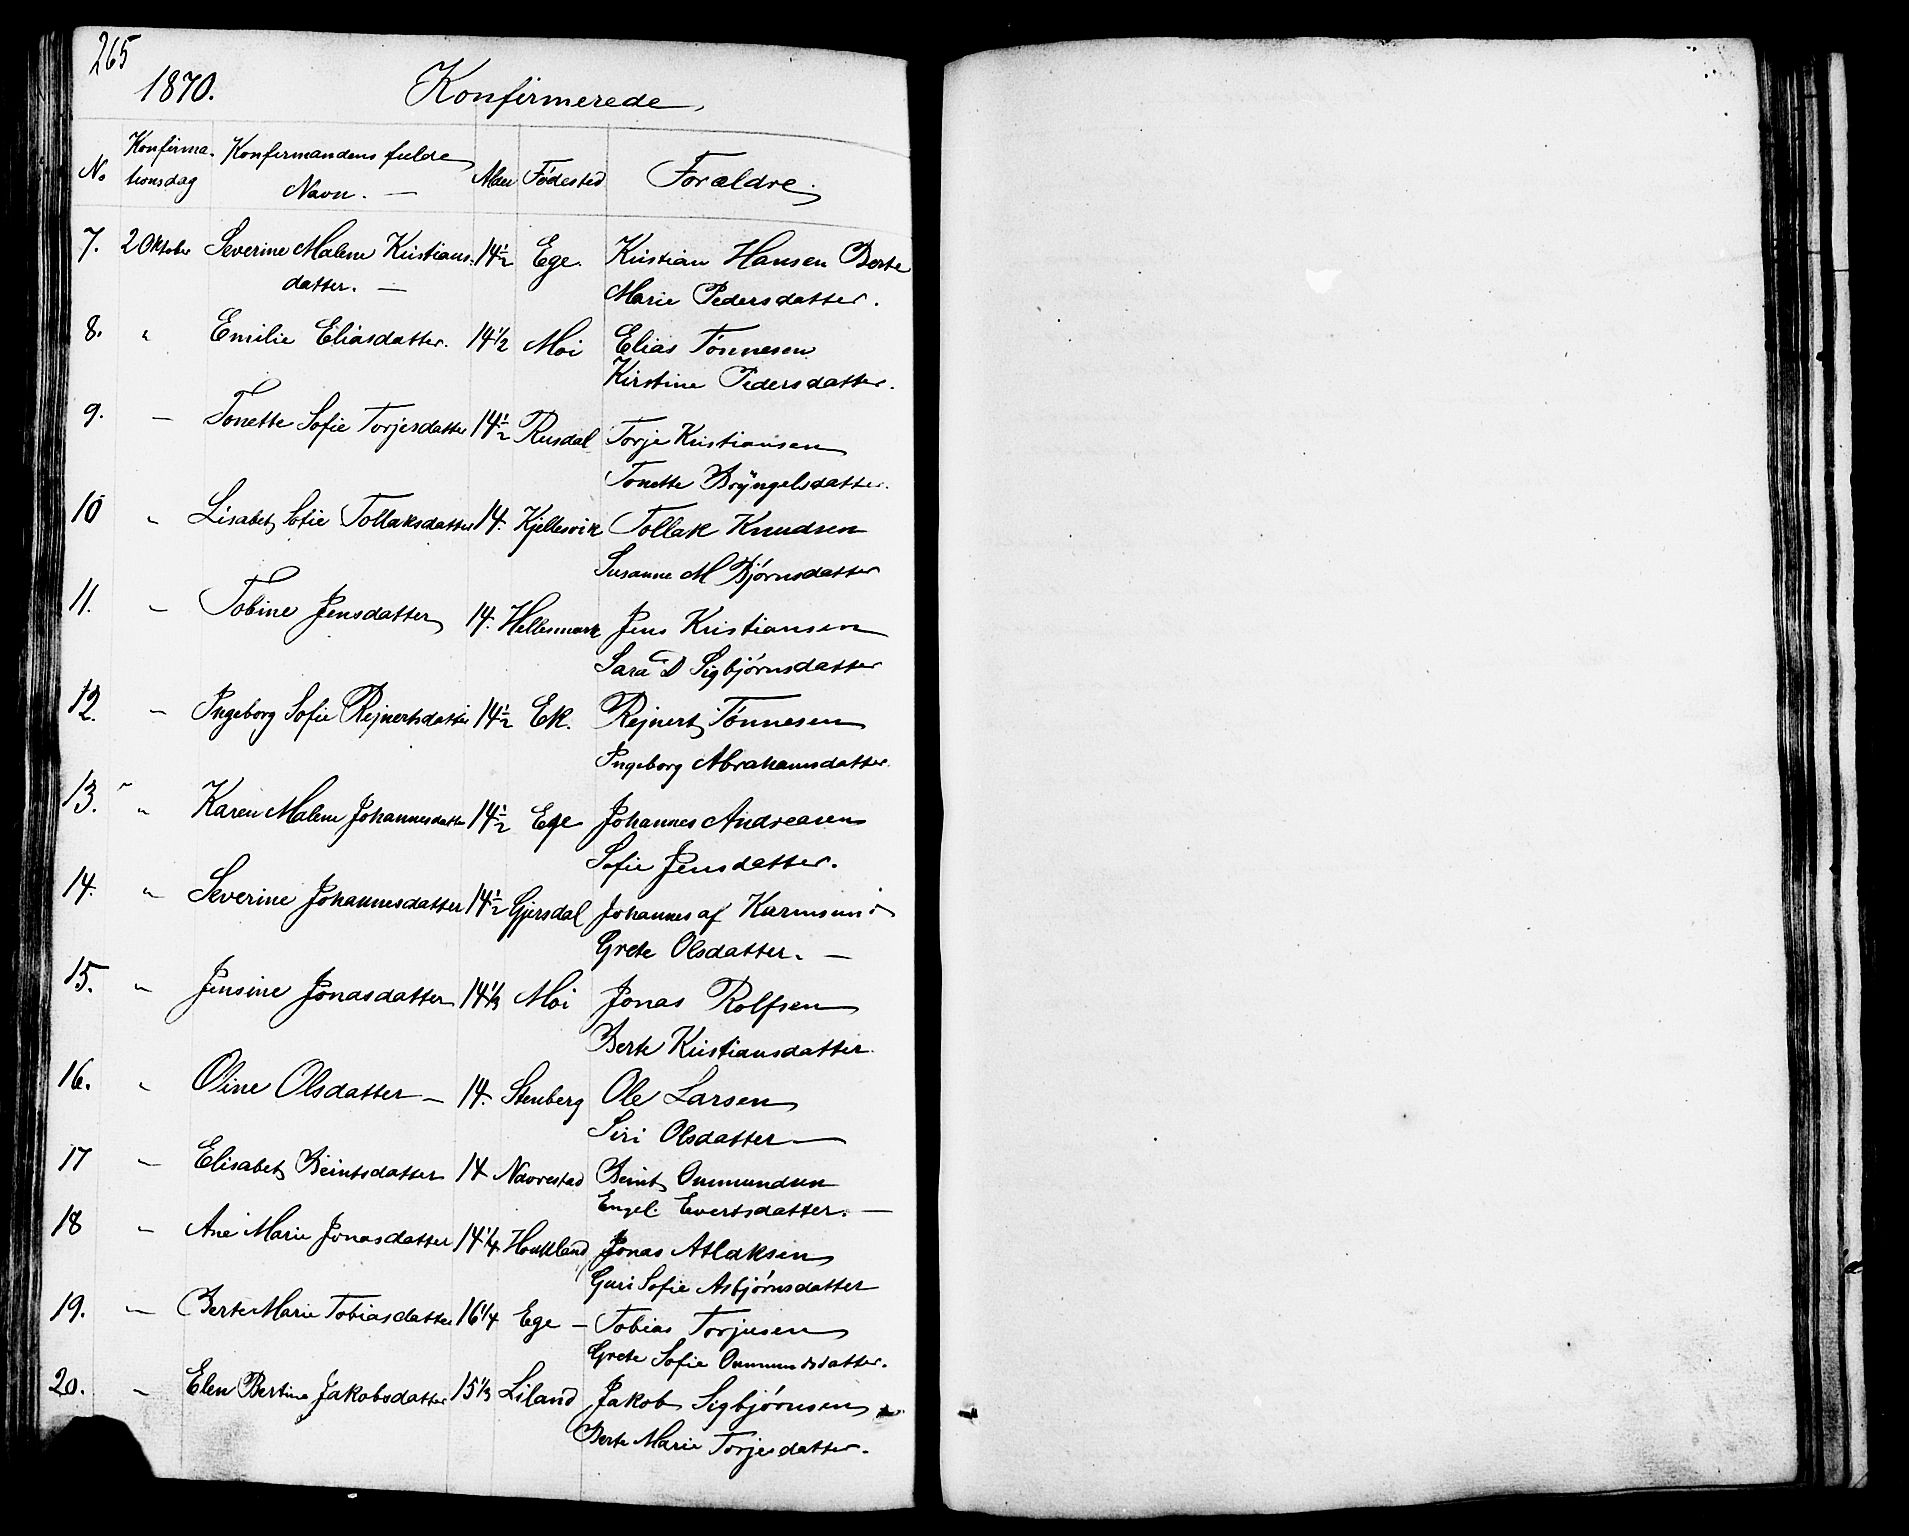 265
1870. Konfirmerede
No Konfirma- Konfirmandens fulde Alder Fødested Forældre.
tionsdag Navn. —
7. 2 Oktober Severine Malene Kristians- 14 1/2 Ege. Kristian Hansen Berte
datter. — Marie Pedersdatter.
8. " Emilie Eliasdatter. 14 1/2 Moi Elias Tønnesen
Kirstine Pedersdatter.
9. — Tonette Sofie Torjesdatter 14 1/2 Rusdal Torje Kristiansen
Tonette Brÿngelsdatter.
10 " Lisabet Sofie Tollaksdatter 14. Kjellesvik Tollak Knudsen
Susanne M Bjørnsdatter
11. " Tobine Jensdatter 14. Hellesmark Jens Kristiansen
Sara D Sigbjørnsdatter
12. — Ingeborg Sofie Rejnertsdatter 14 1/2 Ek. Rejnert Tønnesen
Ingeborg Abrahamsdatter.
13. " Karen Malene Johannesdatter 14 1/2 Ege Johannes Andreasen
Sofie Jensdatter.
14. " Severine Johannesdatter 14 1/2 Gjersdal Johannes af
Grete Olsdatter. —
15. " Jensine Jonasdatter 14 1/3 Moi Jonas Rolfsen
Berte Kristiansdatter.
16. " Oline Olsdatter — 14. Stenberg Ole Larsen
Siri Olsdatter —
17 — Elisabet Beintsdatter 14 Navrestad Beint Ommundsen
Engel Evertsdatter. —
18 " Ane Marie Jonasdatter 14 1/4 Houkland Jonas Atlaksen
Guri Sofie Asbjørnsdatter
19. — Berte Marie Tobiasdatter 16 1/4 Ege — Tobias Torjusen
Grete Sofie Ommundsdatter.
20. " Elen Bertine Jakobsdatter 15 1/3 Liland Jakob Sigbjørnsen
Berte Marie Torjesdatter.